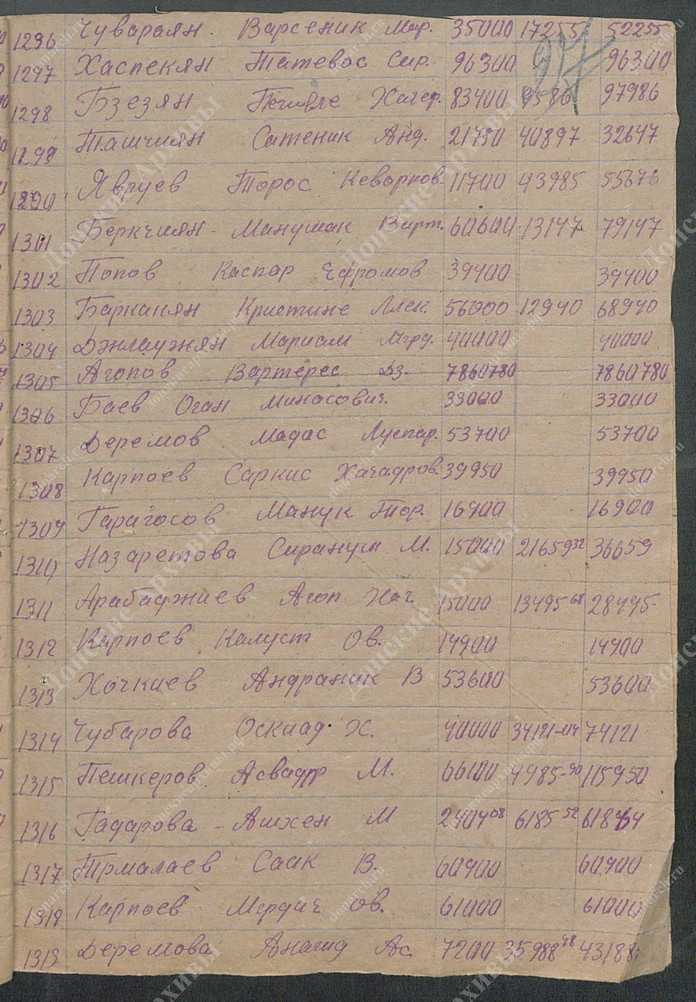 97
1296 Чувараян. Варсеник Мар. 35000 17255 52255
1297 Хаспекян Татевос Сир. 96300 96300
1298 Бзезян Хачер. 83400 97986
1299 Ташчиян Сатеник Анд. 21750 40897 32647
1200 Явруев Торос Кеворков 11700 43985 55676
1301 Беркчиян - Манушак Варт. 60600 13147 79147
1302 Попов Каспар Ефромов 39400 39400
1303 Барканян Кристине Алек. 56000 12940 68940
1304 Мариам Мгрд. 40000 40000
1305 Агопов Вартерес Дз. 7860780 7860780
1306 Баев Оган Минасович. 33000 33000
1307 Деремов Мадас Луспар. 53700 53700
1308 Карпоев Саркис Хачадров. 39950 39950
1309 Гарагосов Манук Тор. 16900 16900
1310 Назаретова Сирануш М. 15000 21659 32 36659
1311 Арабаджиев Агоп Хач 15000 13495 68 28495-
1312 Карпоев Калуст Ов. 14900 14900
1313 Хочкиев Андраник В 53600 53600
1314 Чубарова Оскиад Х. 40000 34121-04 74121
1315 Пешкеров. Асвадур М. 66100 4985-90 115950
1316 Гадарова - Ашхен М 2404 08 6185 52 61864
1317 Тормалаев Саак В. 60900 60900
1318 Карпоев Мердич Ов. 61000 61000
1313 Деремова Анагид Ас. 7200 35988 48 43188